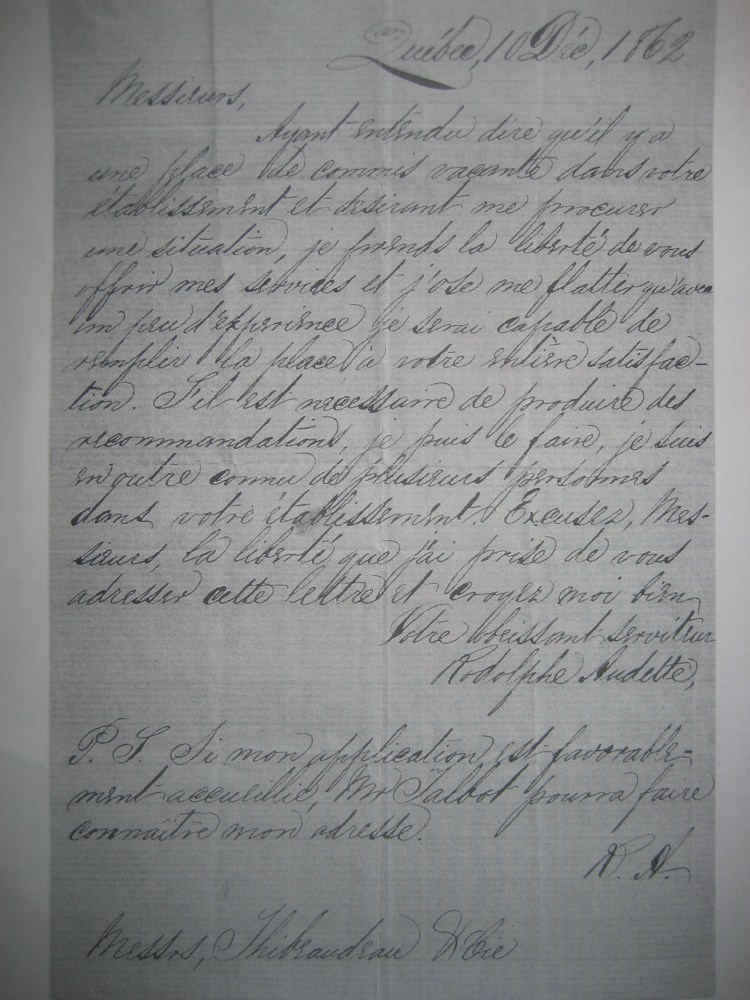 Québec, 10 Déc, 1862
Messieurs,
Ayant entendu dire qu'il y a
une place de commis vacante dans votre
établissement et desirant me procurer
une situation, je prends la liberté de vous
offrir mes services et j'ose me flatter qu'avec
un peu d'experience je serai capable de
remplir la place à votre entière satisfac-
tion. S'il est nécessaire de produire des
recommandations, je puis le faire, je suis
en outre connu de plusieurs personnes
dans votre établissement. Excusez, Mes-
sieurs, la liberté que j'ai prise de vous
adresser cette lettre et croyez moi bien
Votre obéissant serviteur
Rodolphe Audette,
P. S. Si mon application est favorable-
ment accueillie, Mr Talbot pourra faire
connaître mon adresse.
R. A.
Messrs, Thibeaudeau & Cie